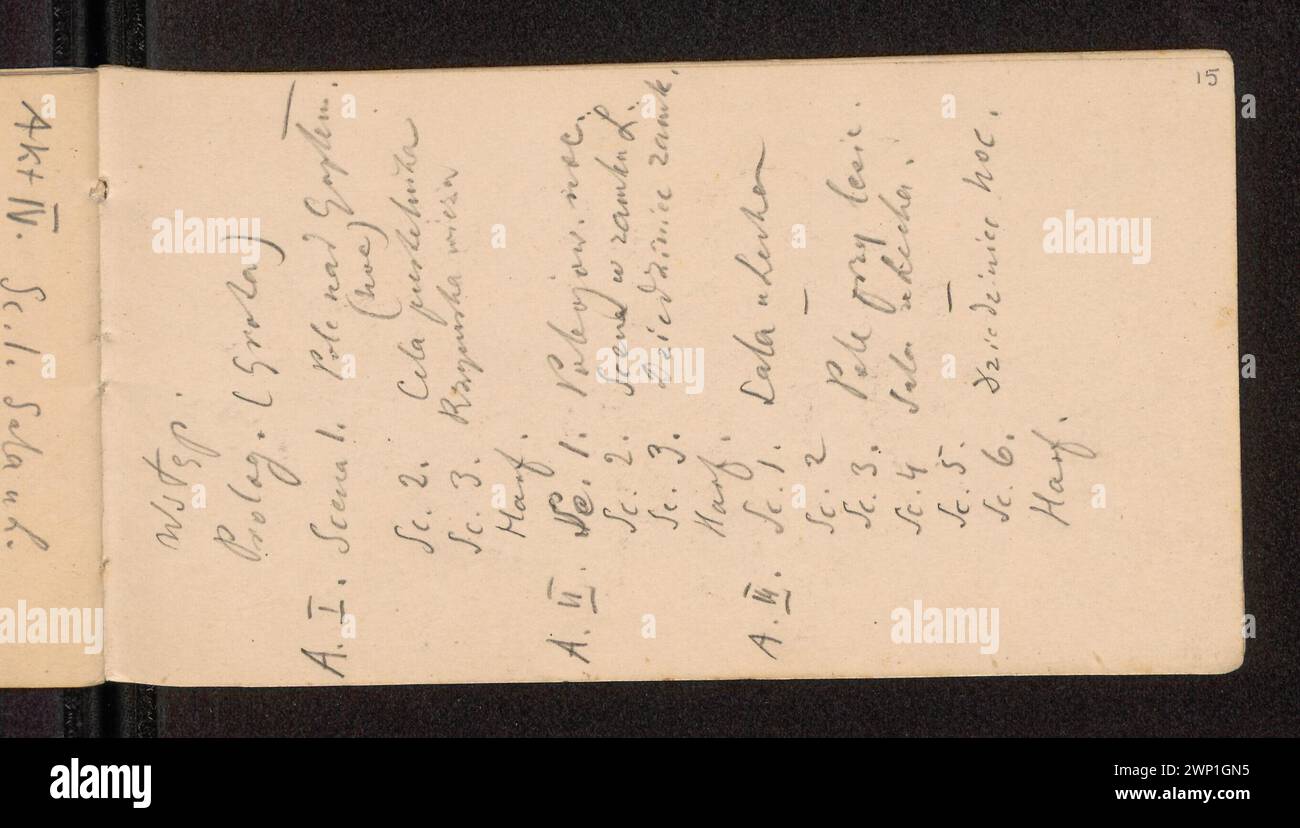 Akt IV. Sc. 1. Sala u L.
15
Wstęp.
Prolog. (Grota)
A. I. Scena 1. Pole nad Gopłem.
(noc)
Sc. 2. Cela pustelnika
Sc. 3. Kruszwicka wieża
Harf.
A. II. Sc. 1. Pokojow. noc.
Sc. 2. Scena w zamku L.
Sc. 3. Dziedziniec zamk.
Harf.
A. III. Sc. 1. Sala u Lecha
Sc. 2 —
Sc. 3. Pole przy lesie.
Sc. 4 Sala u Lecha.
Sc. 5. —
Sc. 6. dziedziniec noc.
Harf.
alamy
alamy
Image ID: 2WP1GN5
www.alamy.com